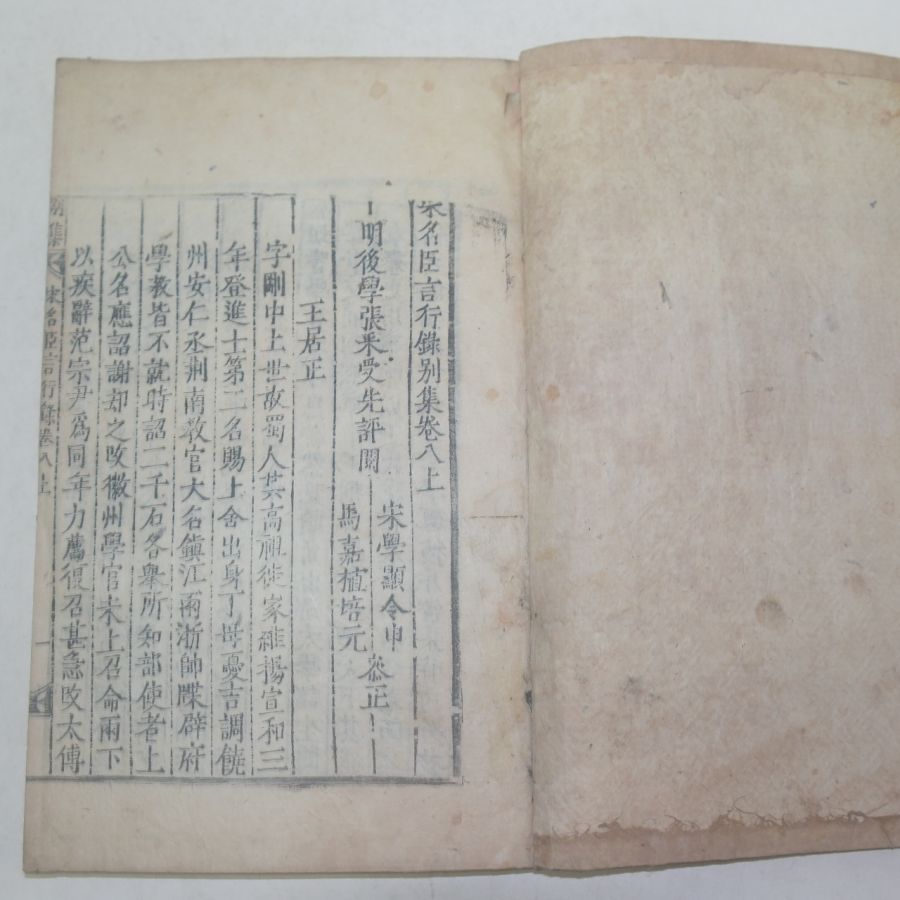 宋名臣言行錄別集卷八上
明後學張采受先評閱
宋學顯令申
馬嘉植培元
叅正
王居正
字剛中上世故蜀人其高祖徙家維揚宣和三
年登進士第二名賜上舍出身丁母憂吉調饒
州安仁丞荆南教官大名鎮江兩浙帥牒辟府
學教皆不就時詔二千石各舉所知部使者上
公名應詔謝却之改徽州學官未上召命兩下
以疾辭范宗尹爲同年力薦復召甚急改太傅
別集 宋名臣言行錄卷八上 一